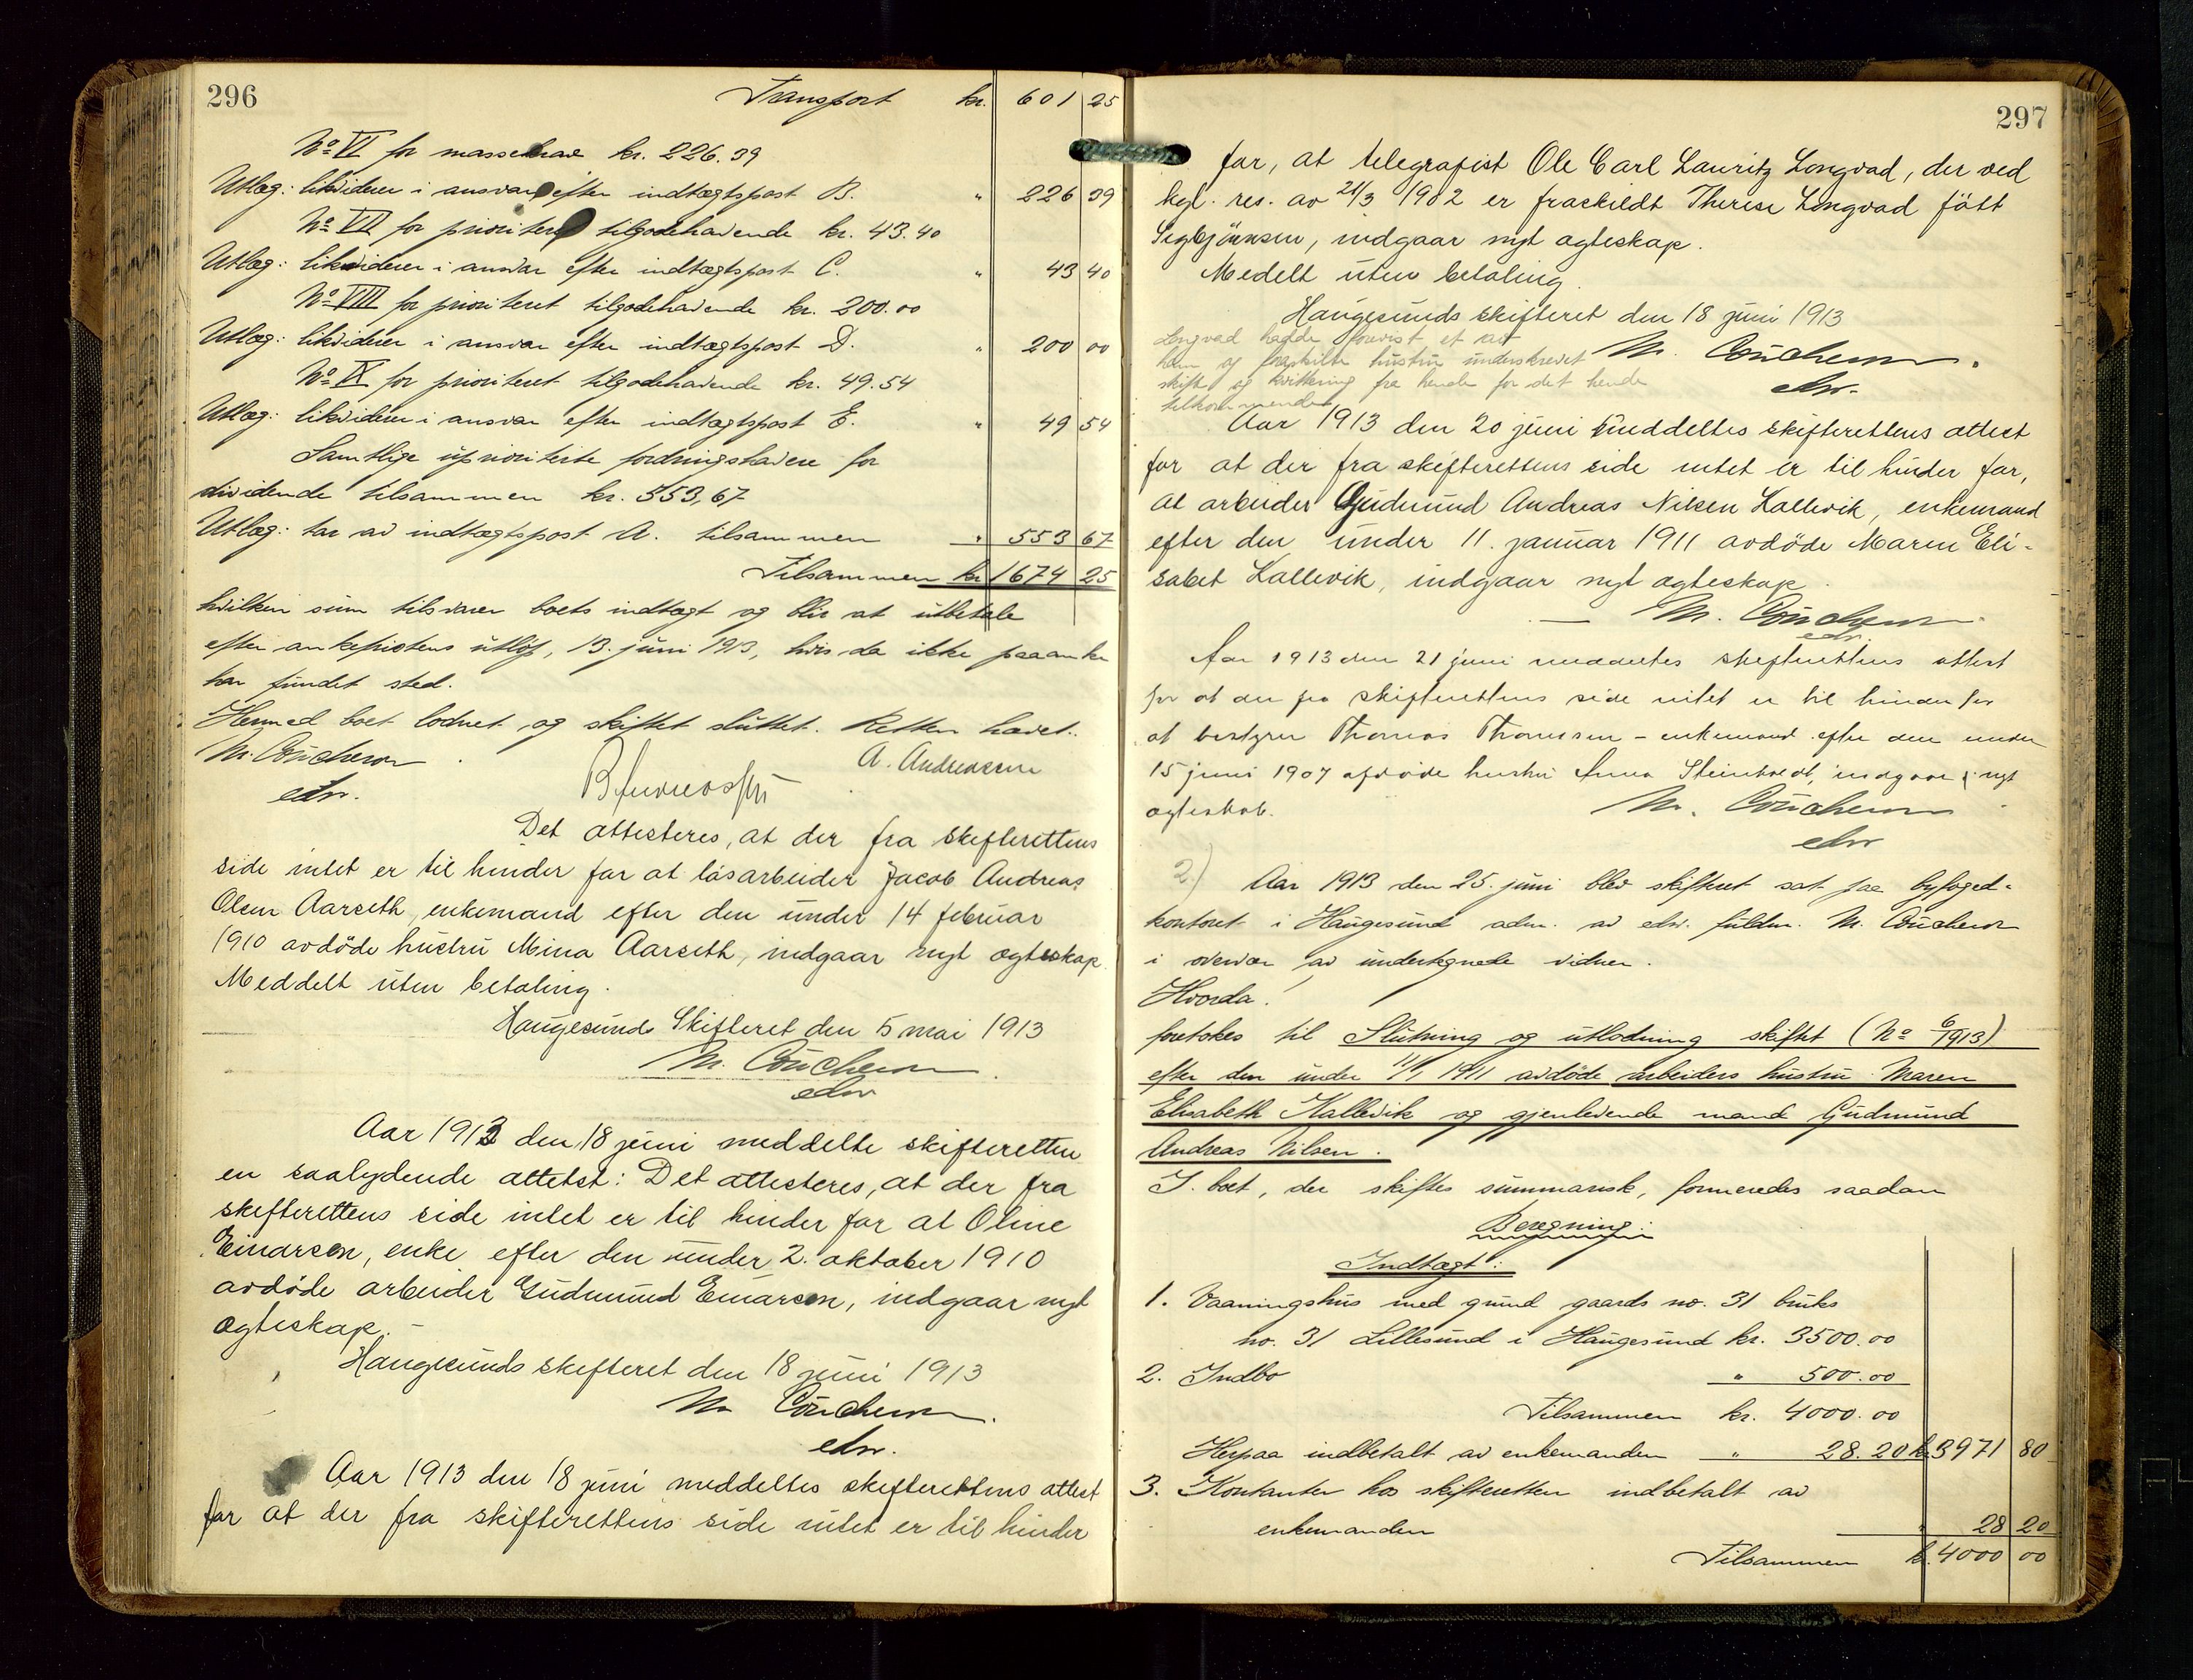 296
Transport kr. 601 25
No VI for massekrav kr. 226.39
Utlæg: likviderer i ansvar efter indtægtspost B. " 226 39
No VII for prioritert tilgodehavende kr. 43.40
Utlæg: likviderer i ansvar efter indtægtspost C. " 43 40
No VIII for prioritert tilgodehavende kr. 200.00
Utlæg: likviderer i ansvar efter indtægtspost D. " 200 00
No IX for prioriteret tilgodehavende kr. 49.54
Utlæg: likviderer i ansvar efter indtægtspost E. " 49 54
Samtlige uprioriterte fordringshavere for
dividende tilsammen kr. 553,67
Utlæg: tar av indtægtspost A. tilsammen " 553 67
Tilsammen kr 1674 25
hvilken sum tilsvarer boets indtægt og blir at utbetale
efter ankefristens utløp, 13. juni 1913, hvis da ikke paaanke
har fundet sted.
Hermed boet lodnet og skiftet sluttet. Retten hævet.
M. Coucheron
edsv.
A. Andreassen
Det attesteres, at der fra skifterettens
side intet er til hinder for at løsarbeider Jacob Andreas
Olsen Aarseth, enkemand efter den under 14 februar
1910 avdöde hustru Mina Aarseth, indgaar nyt ægteskap.
Meddelt uten betaling.
Haugesunds Skifteret den 5 mai 1913
M. Coucheron
edsv
Aar 1913 den 18 juni meddelte skifteretten
en saalydende attetst: Det attesteres, at der fra
skifterettens side intet er til hinder for at Oline
Einarsen, enke efter den under 2. oktober 1910
avdöde arbeider Gudmund Einarsen, indgaar nyt
ægteskap.
Haugesunds skifteret den 18 juni 1913
M Coucheron.
edsv.
Aar 1913 den 18 juni meddeltes skifterettens attest
for at der fra skifterettens side intet er til hinder
297
for, at telegrafist Ole Carl Lauritz Longvad, der ved
kgl. res. av 21/3 1902 er fraskildt Therese Longvad fött
Sigbjörnsen, indgaar nyt ægteskap.
Medelt uten betaling.
Haugesunds skifteret den 18 juni 1913
Longvad hadde forevist et av
ham og fraskilte hustru underskrevet
skifte og kvittering fra hende for det hende
tilkommende
M. Coucheron.
edsv.
Aar 1913 den 20 juni meddeltes skifterettens attest
for at der fra skifterettens side intet er til hinder for,
at arbeider Gudmund Andreas Nilsen Kallevik, enkemand
efter den under 11. januar 1911 avdöde Maren Eli-
sabet Kallevik, indgaar nyt ægteskap.
M. Coucheron
edsv.
Aar 1913 den 21 juni meddeltes skifterettens attest
for at der fra skifterettens side intet er til hinder for
at bestyrer Thomas Thomsen - enkemand efter den under
15 juni 1907 afdøde hustru Anna Steinsvedt, indgaar nyt
ægteskab.
M. Coucheron
edsv
2) Aar 1913 den 25. juni blev skifteret sat paa byfoged-
kontoret i Haugesund adm. av edsv. fuldm. M. Coucheron
i overvær av undertegnede vidner.
Hvorda:
foretokes til Slutning og utlodning skiftet (No 6/1913)
efter den under 11/1 1911 avdöde arbeiders hustru Maren
Elisabeth Kallevik og gjenlevende mand Gudmund
Andreas Nilsen.
I boet, der skiftes summarisk, formeredes saadan
Beregning:
Indtægt:
1. Vaaningshus med grund gaards no. 31 bruks
no. 31 Lillesund i Haugesund kr. 3500.00
2. Indbo " 500.00
Tilsammen kr. 4000.00
Herpaa indbetalt av enkemanden " 28.20 kr 3971 80
3. Kontanter hos skifteretten indbetalt av
enkemanden " 28 20
Tilsammen kr. 4000 00